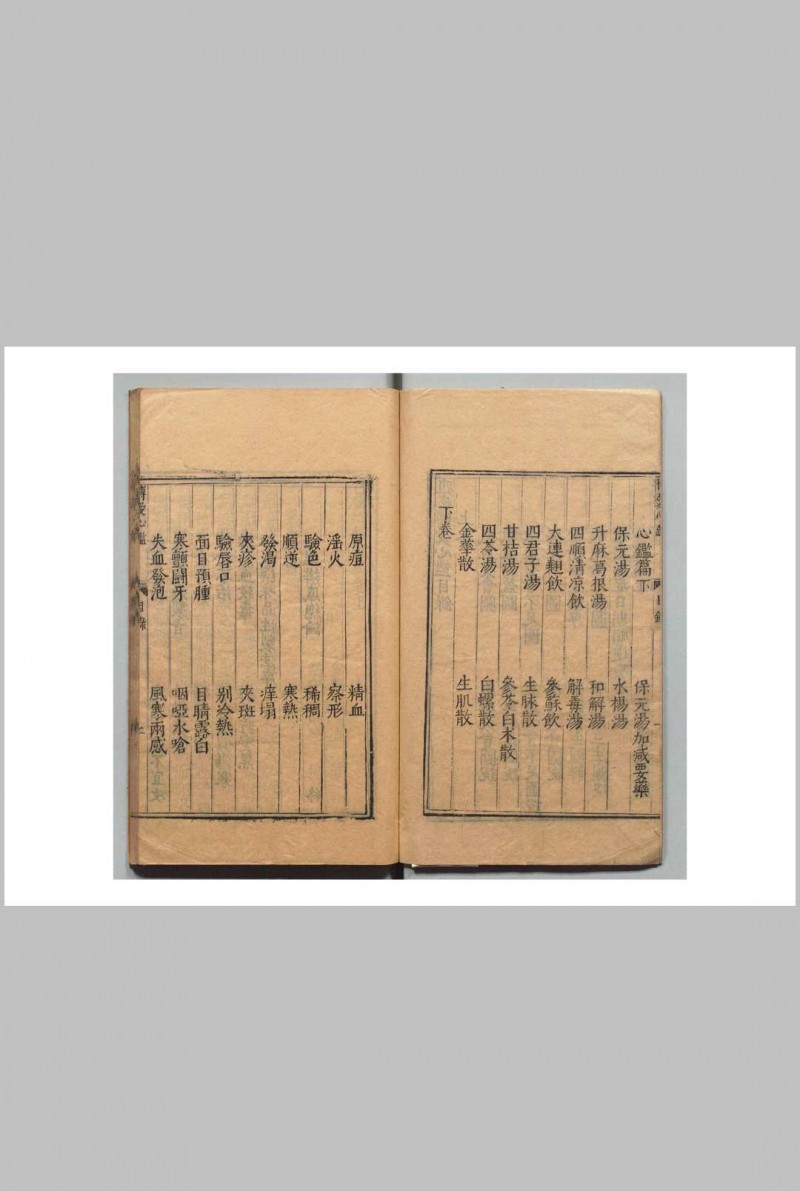 心鑑篇下
保元湯 保元湯加减要藥
水楊湯
升麻葛根湯 和解湯
四順清凉飲 解毒湯
大連翹飲 參蘇飲
四君子湯 生脉散
甘桔湯 參苓白朮散
四苓湯 白螺散
金華散 生肌散
下卷
原痘 精血
淫火 察形
驗色 稀稠
順逆 寒熱
發渴 痒塌
夾疹 夾斑
驗唇口 别冷熱
面目預腫 目睛露白
寒顫鬪牙 咽啞水嗆
失血發泡 風寒兩感
目錄